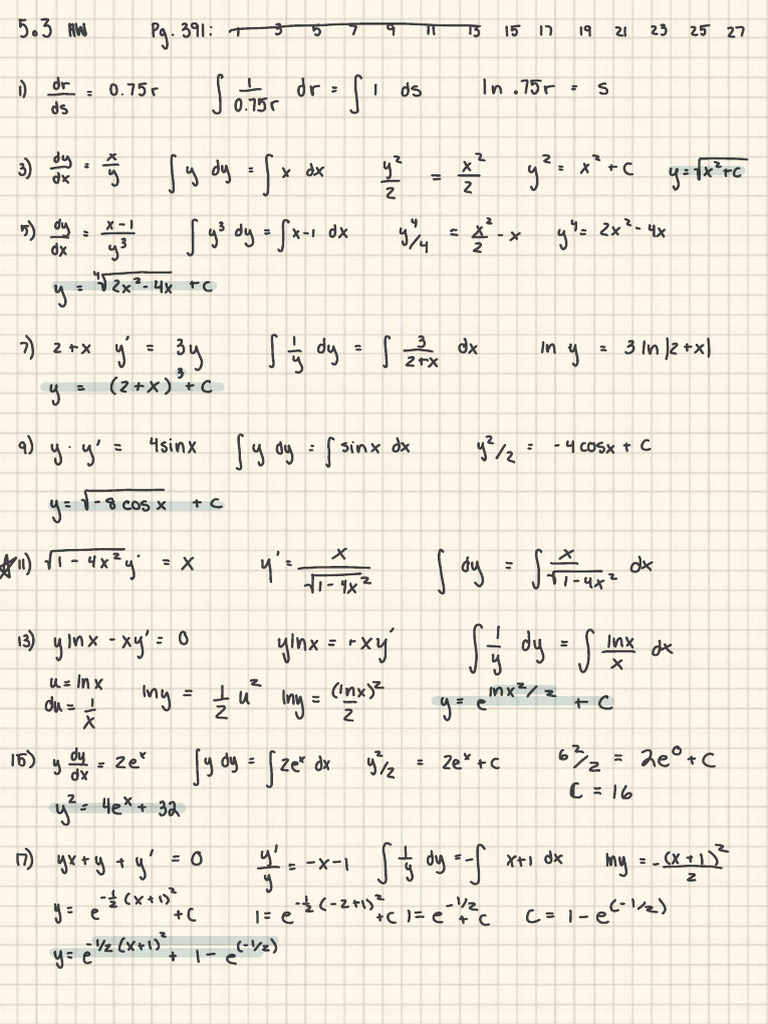 5.3 HW Pg. 391: 1 3 5 7 9 11 13 15 17 19 21 23 25 27
1) dr/ds = 0.75r ∫ 1/0.75r dr = ∫ 1 ds ln .75r = s
3) dy/dx = x/y ∫ y dy = ∫ x dx y²/2 = x²/2 y² = x² + C y = √(x²+C)
5) dy/dx = x-1/y³ ∫ y³ dy = ∫ x-1 dx y⁴/4 = x²/2 - x y⁴ = 2x² - 4x
y = ⁴√(2x² - 4x) + C
7) 2+x y' = 3y ∫ 1/y dy = ∫ 3/2+x dx ln y = 3 ln|2+x|
y = (2+x)³ + C
9) y · y' = 4sinx ∫ y dy = ∫ sinx dx y²/2 = -4cosx + C
y = √(-8 cos x) + C
☆11) √(1 - 4x²) y' = x y' = x/√(1-4x²) ∫ dy = ∫ x/√(1-4x²) dx
13) ylnx - xy' = 0 ylnx = -xy' ∫ 1/y dy = ∫ lnx/x dx
u = lnx
du = 1/x lny = 1/2 u² lny = (lnx)²/2 y = e^(lnx²/2) + C
15) y dy/dx = 2eˣ ∫ y dy = ∫ 2eˣ dx y²/2 = 2eˣ + C 6²/2 = 2e⁰ + C
C = 16
y² = 4eˣ + 32
17) yx + y + y' = 0 y'/y = -x-1 ∫ 1/y dy = -∫ x+1 dx lny = -(x+1)²/2
y = e^(-1/2 (x+1)²) + C 1 = e^(-1/2 (-2+1)²) + C 1 = e^(-1/2) + C C = 1 - e^(-1/2)
y = e^(-1/2 (x+1)²) + 1 - e^(-1/2)